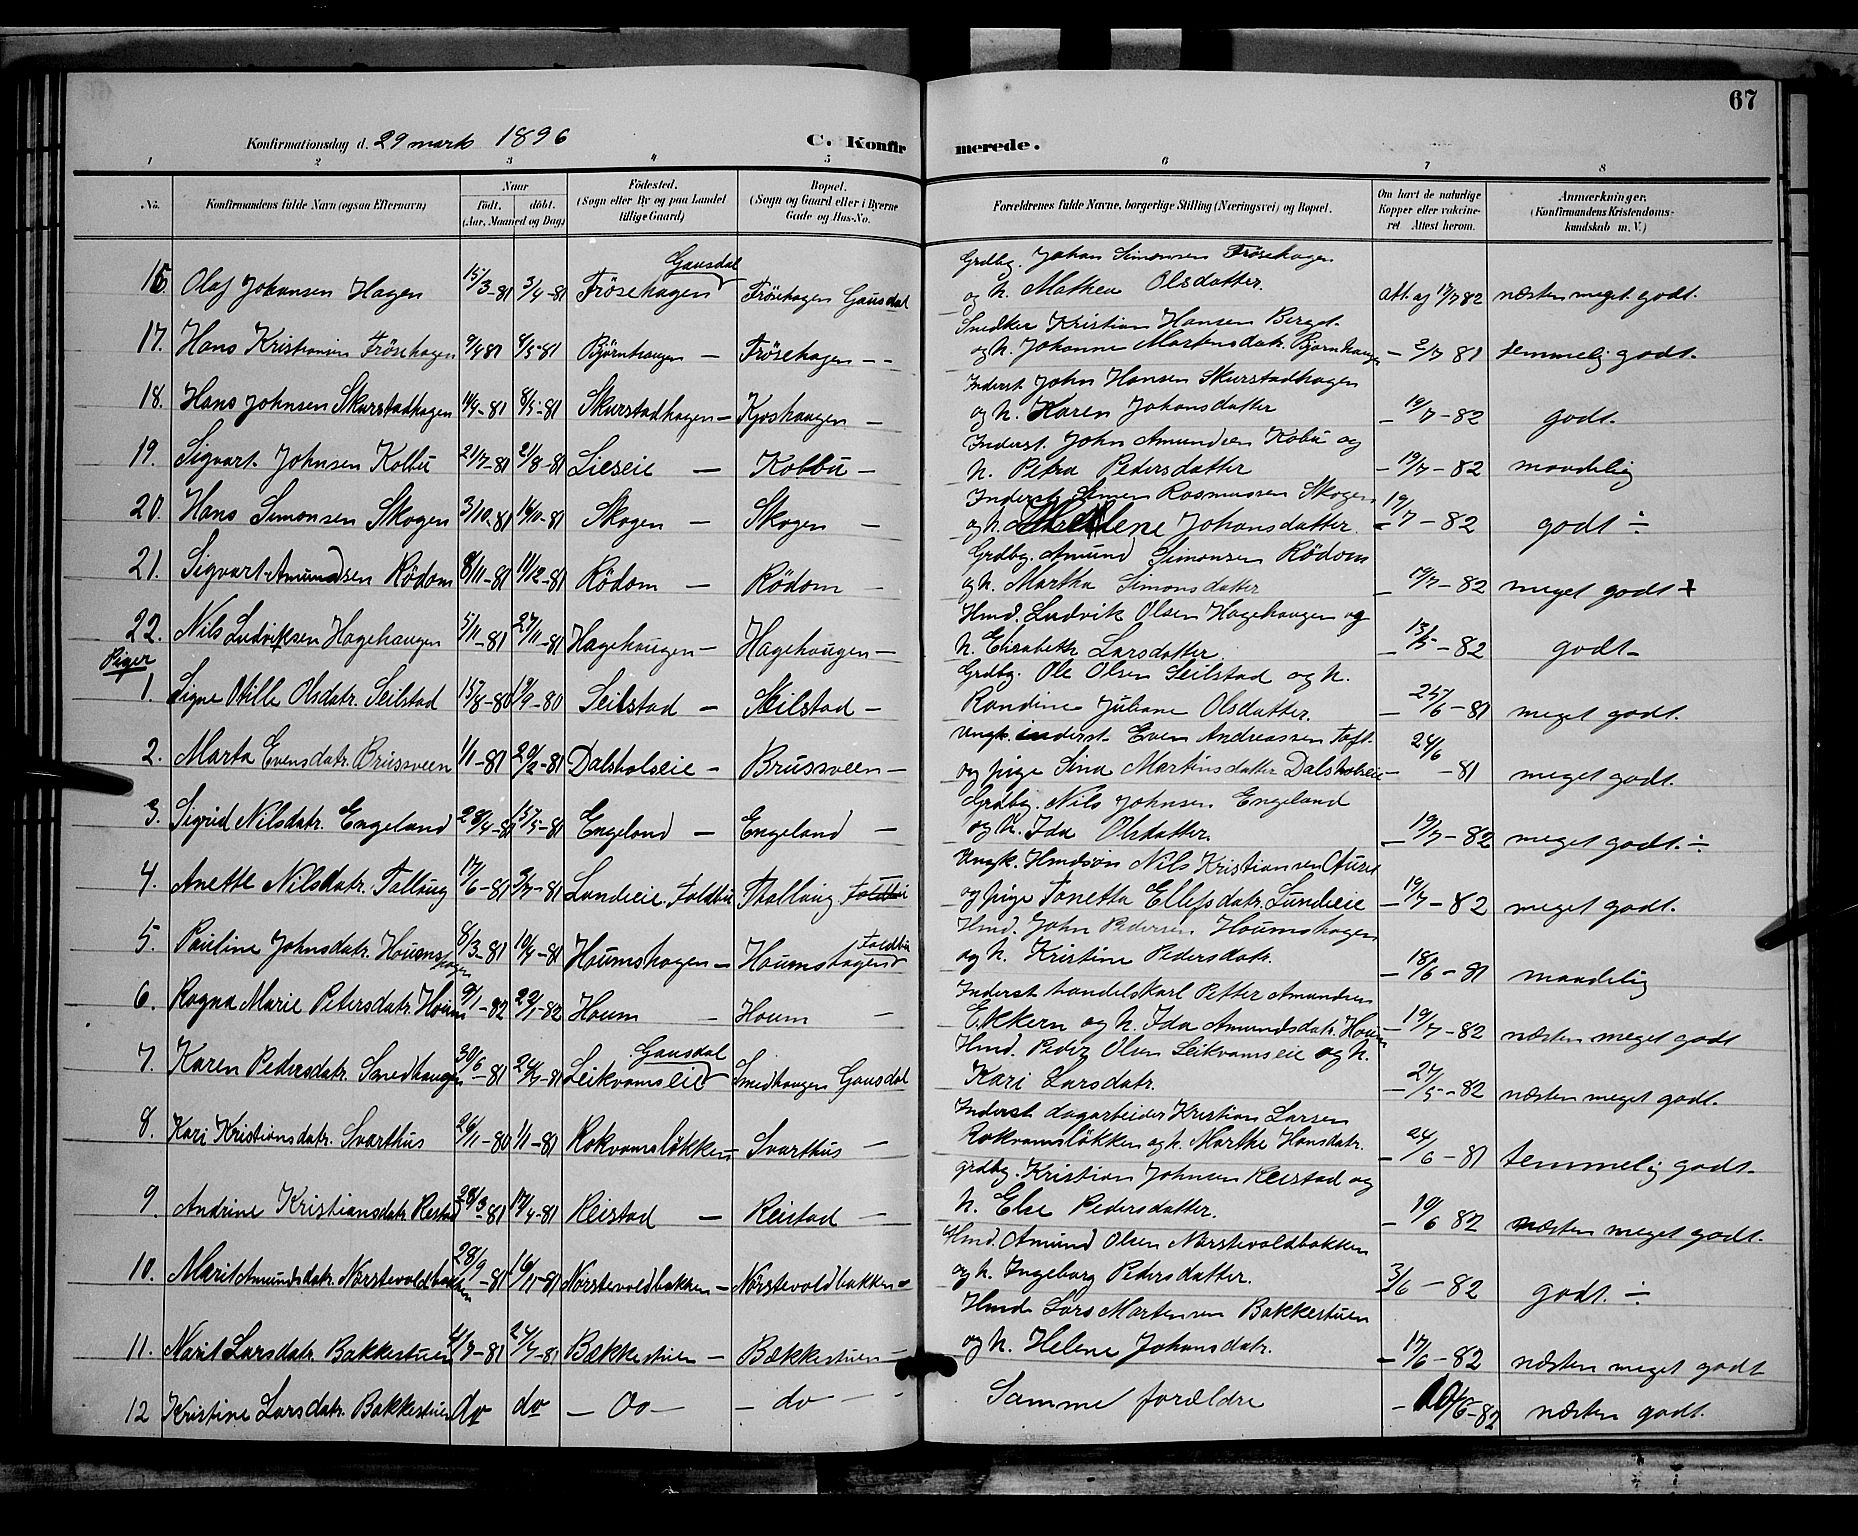 67
Konfirmationsdag d. 29 marts 1896 C. Konfirmerede.
1 2 3 4 5 6 7 8
No. Konfirmandens fulde Navn (ogsaa Efternavn) Naar födt. döbt. (Aar, Maaned og Dag) Födested. (Sogn eller By og paa Landet tillige Gaard) Bopæl. (Sogn og Gaard eller i Byerne Gade og Hus-No. Forældrenes fulde Navne, borgerlige Stilling (Næringsvei) og Bopæl. Om havt de naturlige Kopper eller vaccineret Attest herom. Anmærkninger. (Konfirmandens Kristendomskundskab m. V.)
Gausdal Grdbg. Johan Simonsen Frösehagen
16 Olaf Johansen Hagen 15/3-81 3/4-81 Frösehagen Frösehagen Gausdal og h. Mathea Olsdatter. att. af 19/7 82 næsten meget godt.
Snedker Kristian Hansen Berget
17. Hans Kristiansen Frösehagen 9/4 81 8/5-81 Bjørnhaugen — Frösehagen -- og h. Johanne Martensdatr. Bjørnhaugen - 2/7 81 temmelig godt.
Inderst. John Hansen Skurstadhagen
18. Hans Johnsen Skurstadhagen 14/4-81 8/5-81 Skurstadhagen — Kjoshaugen — og h. Karen Johansdatter — 19/7-82 godt.
Inderst. John Amundsen Kobu og
19. Sigvart Johnsen Kolbu 21/7-81 21/8-81 Lieseie — Kolbu — h. Petra Pedersdatter — 19/7-82 maadelig
Inderst Simen Rasmussen Skogen
20. Hans Simonsen Skogen 3/10-81 16/10-81 Skogen — Skogen — og h. Helene Johansdatter. 19/7-82 godt ÷
Grdbg. Amund Simonsen Rödom
21. Sigvart Amundsen Rödom 8/11-81 11/12-81 Rödom — Rödom — og h. Martha Simonsdatter — 19/7-82 meget godt +
Hmd. Ludvik Olsen Hagehaugen og
22. Nils Ludviksen Hagehaugen 5/11-81 27/11-81 Hagehaugen — Hagehaugen — h. Elisabeth Larsdatter — 13/5-82 godt
Piger
Grdbg. Ole Olsen Seilstad og h.
1. Signe Otille Olsdatr. Seilstad 15/8-80 19/9-80 Seilstad — Seilstad — Randine Juliane Olsdatter. — 25/6-81 meget godt.
Ungk. inderst. Even Andreassen Toft
2. Marta Evensdatr. Brusveen 1/1-81 20/2-81 Dalsholseie — Brussveen — og pige Sina Martinsdatter Dalsholseie — 24/6-81 meget godt.
Grdbg. Nils Johnsen Engeland
3. Sigrid Nilsdatr. Engeland 28/4-81 15/5-81 Engeland — Engeland — og h. Ida Olsdatter. — 19/7-82 meget godt. ÷
Ungk. Hmdsøn Nils Kristiansen
4. Anette Nilsdatr. Tallaug 17/6-81 3/7-81 Lundeeie Foldbu Tallaug og pige Tonetta Ellefsdatr. Lundeie — 19/7-82 meget godt.
Hmd. John Pedersen Houmshagen
5. Pauline Johnsdatr. Houmshagen 8/3-81 10/4-81 Houmshagen — Houmshagen Foldbu og h. Kristine Pedersdatr. — 18/6-81 maadelig
Inderst handelskarl Petter Amundsen
6. Ragna Marie Petersdatr. Houm 9/1-82 29/1-82 Houm — Houm — Ekkern og h. Ida Amundsdatr. Houm — 19/7-82 næsten meget godt
Gausdal Hmd. Peder Olsen Leikvamseie og h.
7. Karen Pedersdatr. Smedhaugen 30/6-81 24/7-81 Leikvamseie Smedhaugen Gausdal Kari Larsdatr. — 27/5-82 næsten meget godt.
Inderst. dagarbeider Kristian Larsen
8. Kari Kristiansdatr. Svarthus 26/11-80 1/1-81 Rokvamsløkken — Svarthus — Rokvamsløkken og h. Marthe Hansdatr. — 24/6-81 temmelig godt.
grdbg. Kristian Johnsen Reistad og
9. Andrine Kristiansdatr. Restad 28/3-81 17/4-81 Reistad — Reistad — h. Else Pedersdatter. — 19/6 82 næsten meget godt.
Hmd. Amund Olsen Norstevoldbakken
10. Marit Amundsdatr. Norstevoldbakken 28/9-81 16/11-81 Norstevoldbakken — Norstevoldbakken — og h. Ingeborg Pedersdatter. 3/6-82 godt. ÷
Hmd. Lars Martensen Bakkestuen
11. Marit Larsdatr. Bakkestuen 4/7-81 24/7-81 Bækkestuen — Bækkestuen — og h. Helene Johansdatr. — 17/6-82 næsten meget godt
12 Kristine Larsdatr. Bakkestuen do do — Do — — do — Samme forældre — 10/6-82 næsten godt.